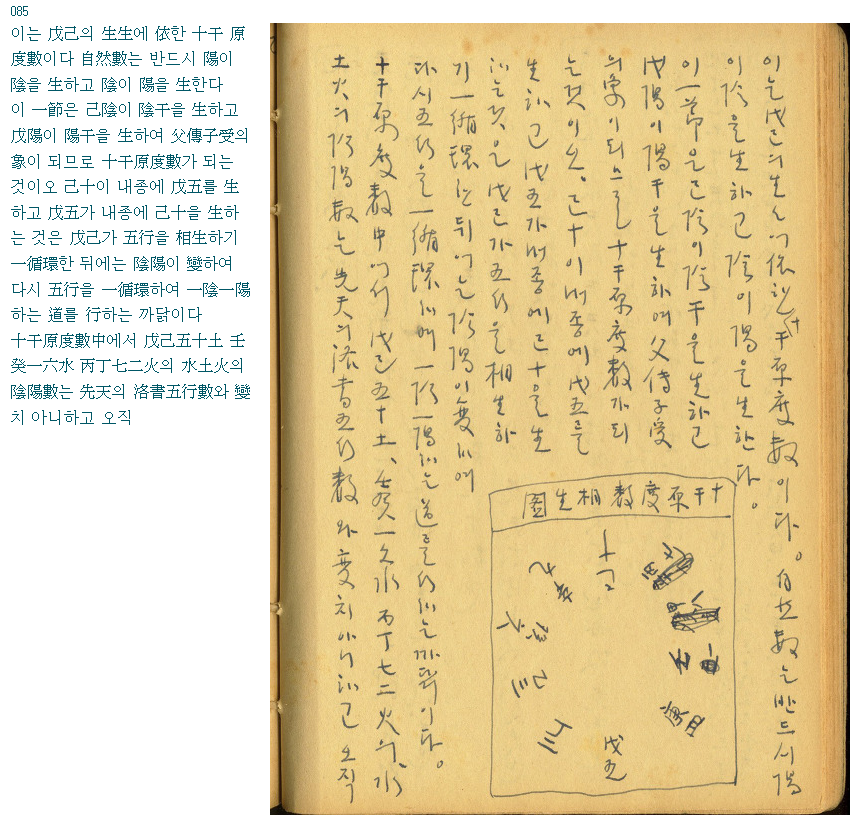 085
이는 戊己의 生生에 依한 十干 原
度數이다 自然數는 반드시 陽이
陰을 生하고 陰이 陽을 生한다
이 一節은 己陰이 陰干을 生하고
戊陽이 陽干을 生하여 父傳子受의
象이 되므로 十干原度數가 되는
것이오 己十이 내종에 戊五를 生
하고 戊五가 내종에 己十을 生하
는 것은 戊己가 五行을 相生하기
一循環한 뒤에는 陰陽이 變하여
다시 五行을 一循環하여 一陰一陽
하는 道를 行하는 까닭이다
十干原度數中에서 戊己五十土 壬
癸一六水 丙丁七二火의 水土火의
陰陽數는 先天의 洛書五行數와 變
치 아니하고 오직
이는 戊己의 生生에 依한 十干原度數이다。自然數는 반드시 陽
이 陰을 生하고 陰이 陽을 生한다。
이 一節은 己陰이 陰干을 生하고
戊陽이 陽干을 生하여 父傳子受
의 象이 되므로 十干原度數가 되
는 것이오。己十이 내종에 戊五를
生하고 戊五가 내종에 己十을 生
하는 것은 戊己가 五行을 相生하
기 一循環한 뒤에는 陰陽이 變하여
다시 五行을 一循環하여 一陰一陽하는 道를 行하는 까닭이다。
十干原度數中에서 戊己五十土、壬癸一六水 丙丁七二火의、水
土火의 陰陽數는 先天의 洛書五行數와 變치 아니하고 오직
十干原度數相生圖
十己
九
戊五